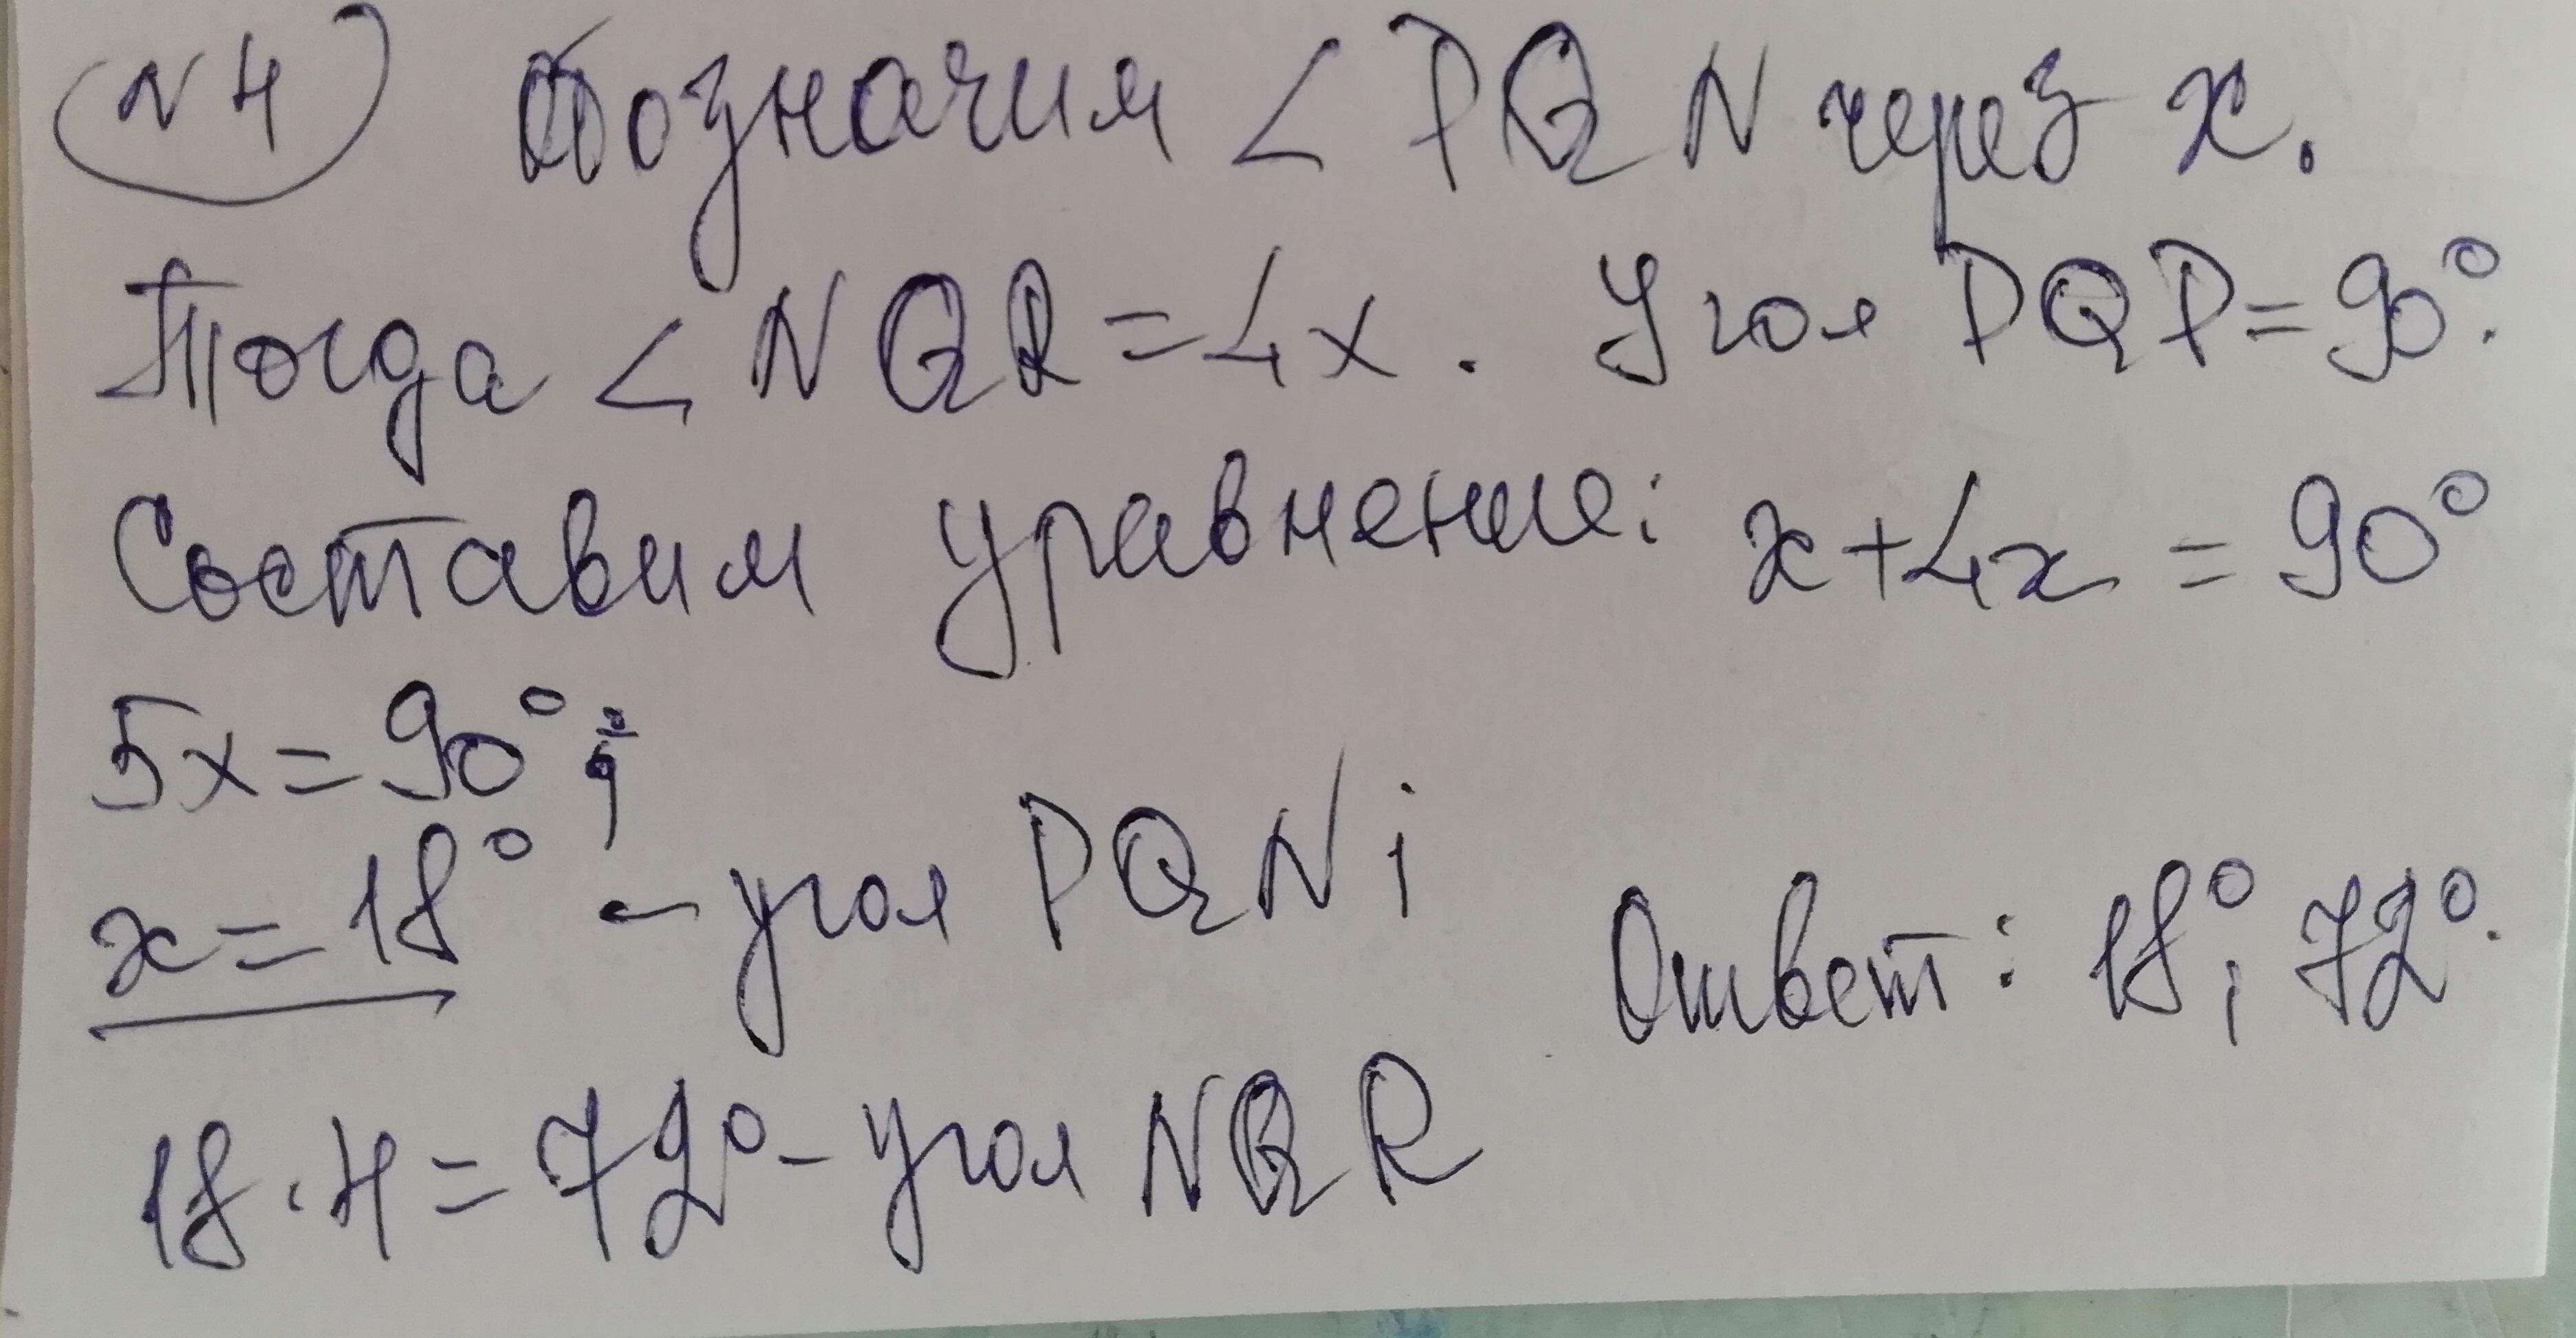 №4 Обозначим < PQN через x.
Тогда < NQR = 4x. Угол PQP = 90°.
Составим уравнение: x + 4x = 90°
5x = 90°;
x = 18° – угол PQN;
Ответ: 18°; 72°.
18 · 4 = 72° – угол NQR